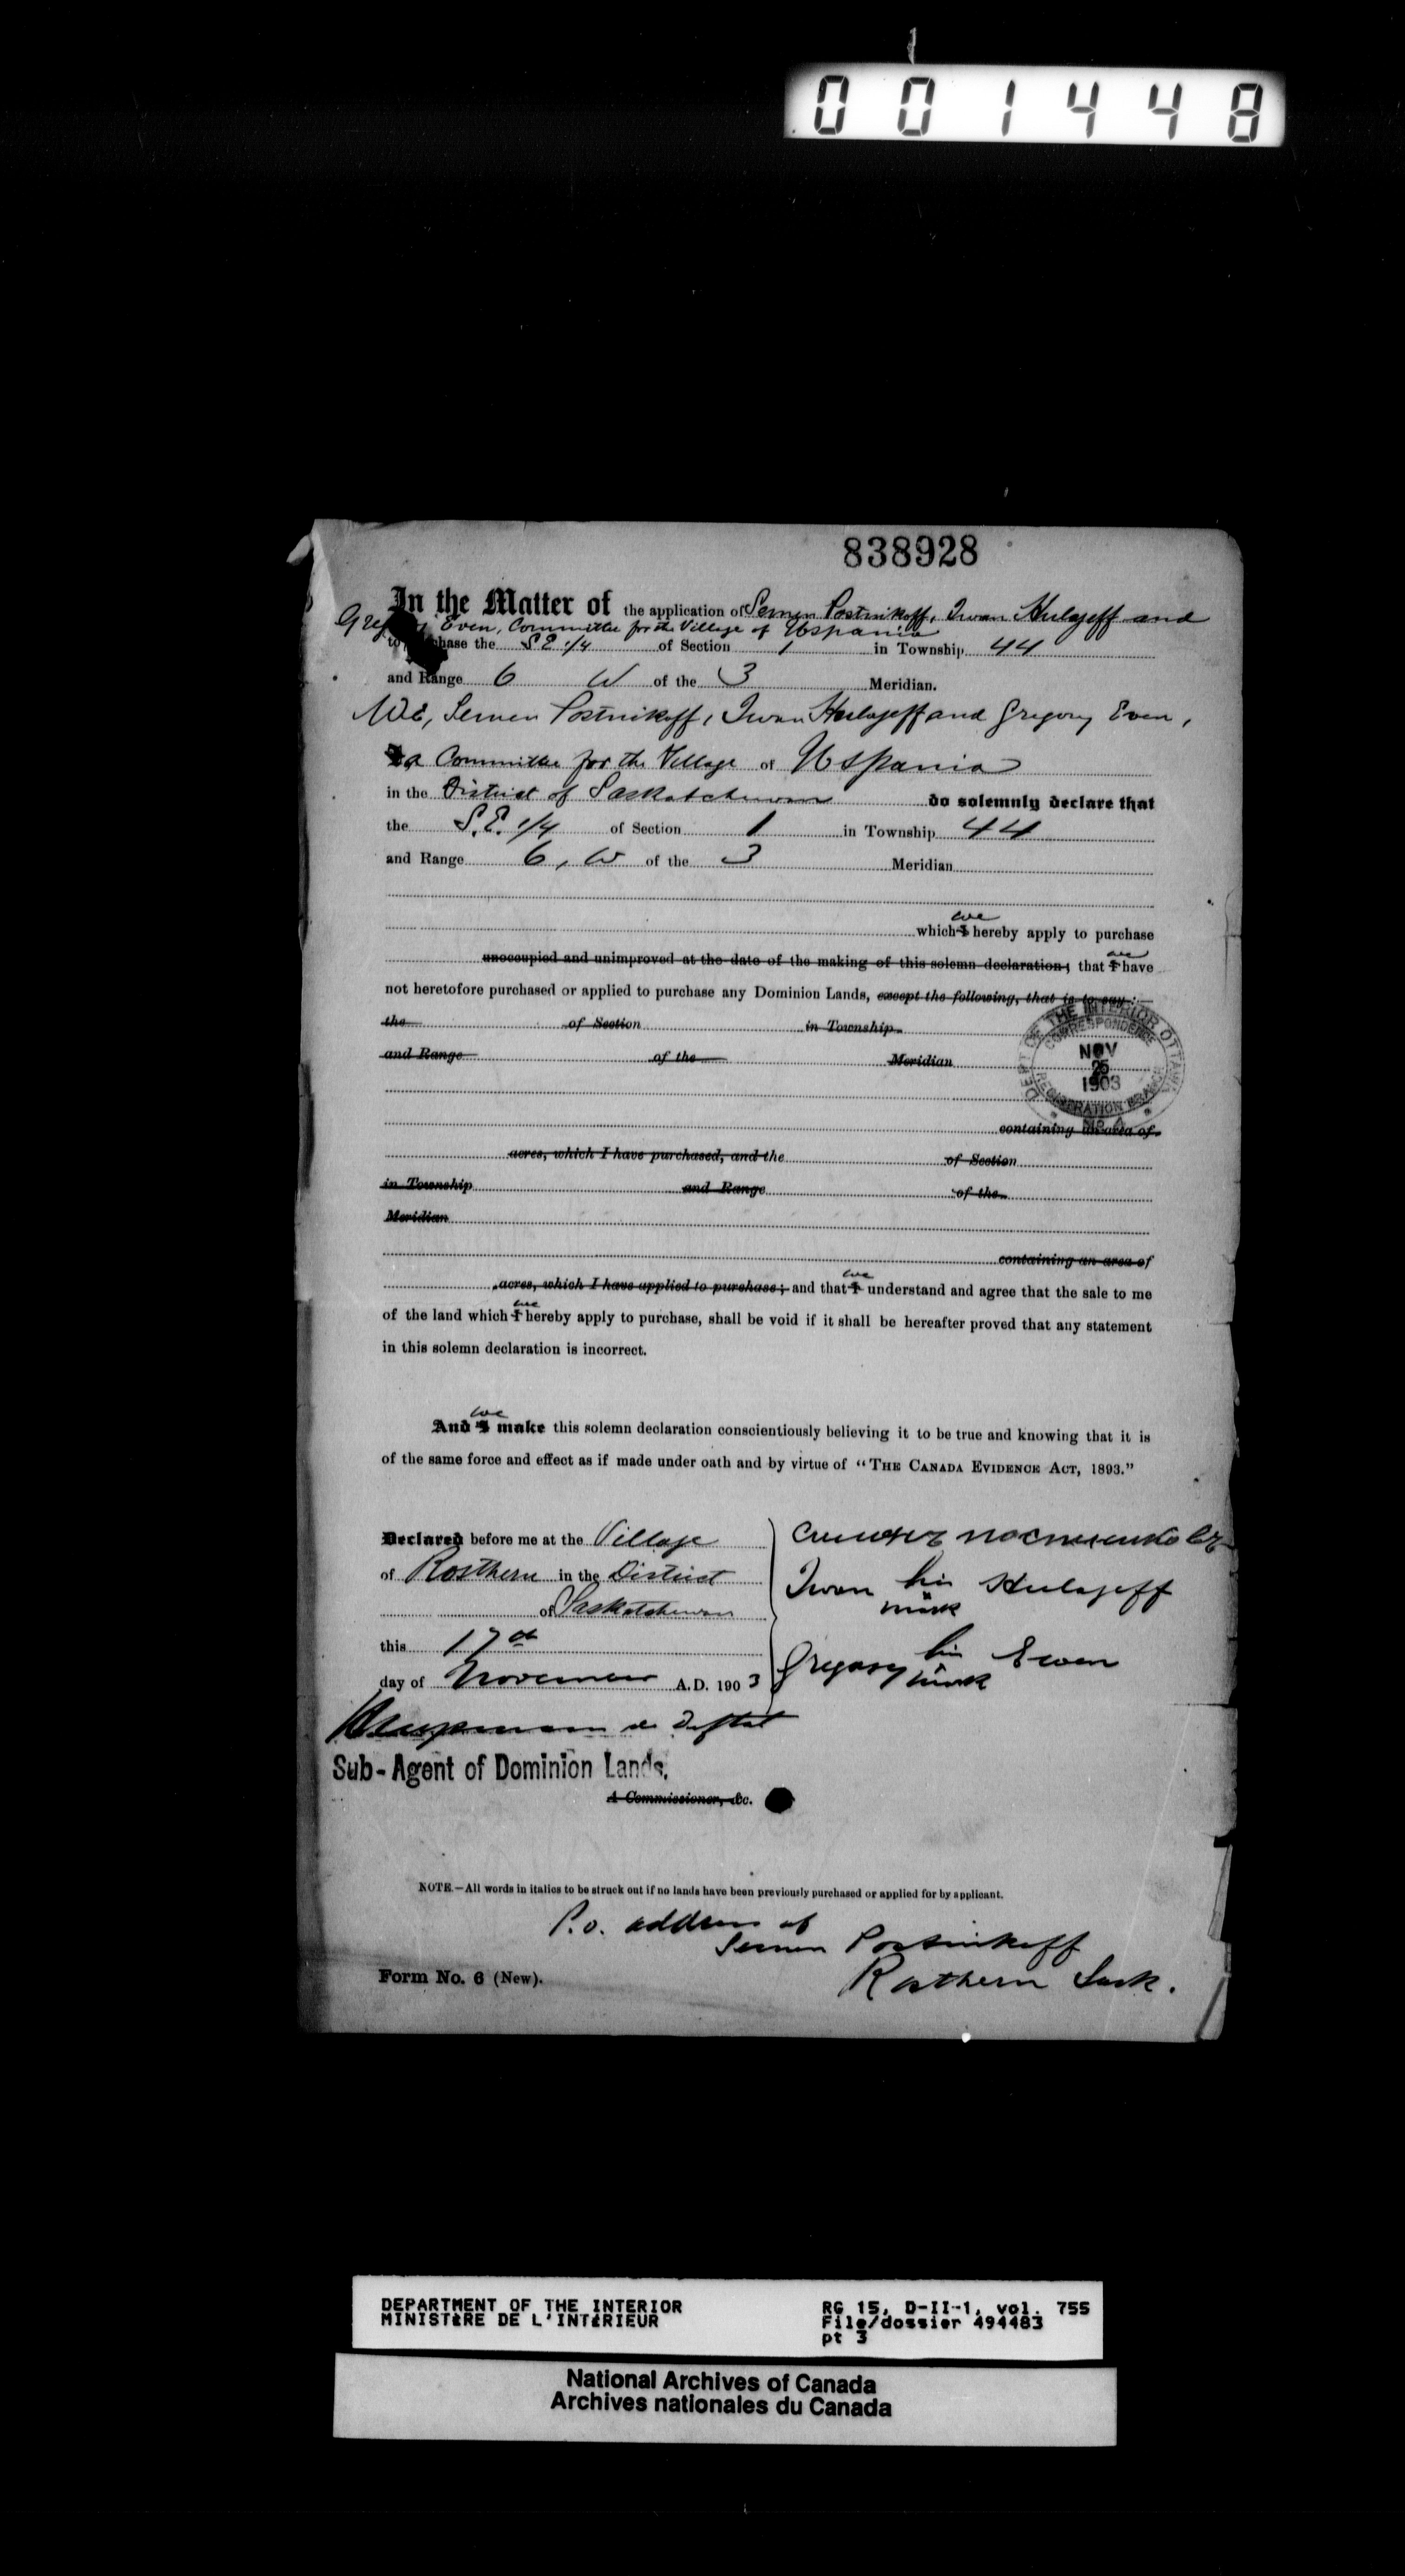 001448
838928
In the Matter of the application of Semen Postnikoff, Iwan Hulajeff and
Gregory Even, Committee for the Village of Uspania
to purchase the S E 1/4 of Section 1 in Township 44
and Range 6 W of the 3 Meridian.
We, Semen Postnikoff, Iwan Hulajeff and Gregory Even,
a Committee for the Village of Uspania
in the District of Saskatchewan do solemnly declare that
the S.E. 1/4 of Section 1 in Township 44
and Range 6, W of the 3 Meridian
we
which I hereby apply to purchase
we
unoccupied and unimproved at the date of the making of this solemn declaration; that I have
not heretofore purchased or applied to purchase any Dominion Lands, except the following, that is to say:
the of Section in Township
and Range of the Meridian
DEPT OF THE INTERIOR OTTAWA
CORRESPONDENCE
NOV
25
1903
REGISTRATION BRANCH
containing an area of
acres, which I have purchased, and the of Section
in Township and Range of the
Meridian
containing an area of
we
acres, which I have applied to purchase; and that I understand and agree that the sale to me
we
of the land which I hereby apply to purchase, shall be void if it shall be hereafter proved that any statement
in this solemn declaration is incorrect.
we
And I make this solemn declaration conscientiously believing it to be true and knowing that it is
of the same force and effect as if made under oath and by virtue of "THE CANADA EVIDENCE ACT, 1893."
Declared before me at the Village
of Rosthern in the District
of Saskatchewan
this 17th
day of November A.D. 1903
Iwan his Hulajeff
mark
Gregory his Ewen
mark
Sub-Agent of Dominion Lands.
A Commissioner, &c.
NOTE.—All words in italics to be struck out if no lands have been previously purchased or applied for by applicant.
P.O. address of
Semen Postnikoff
Rosthern Sask.
Form No. 6 (New).
DEPARTMENT OF THE INTERIOR
MINISTÈRE DE L'INTÉRIEUR
RG 15, D-II-1, vol. 755
File/dossier 494483
pt 3
National Archives of Canada
Archives nationales du Canada